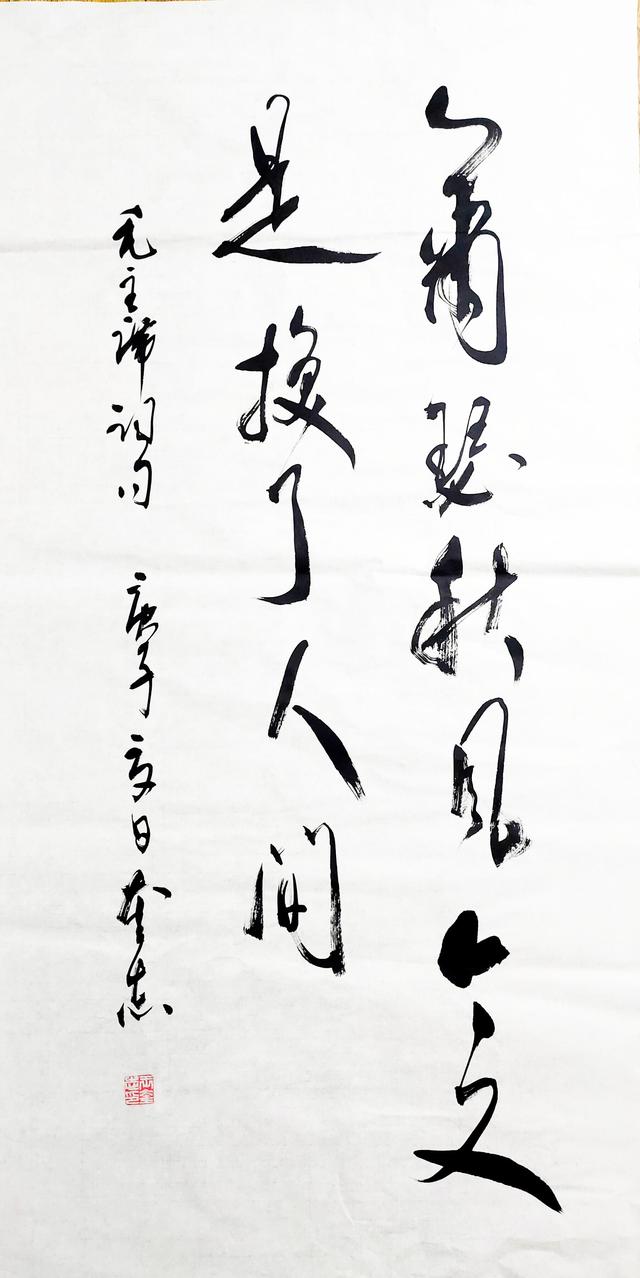 萧瑟秋风今又
是换了人间
毛主席词句 庚子夏日 奎志